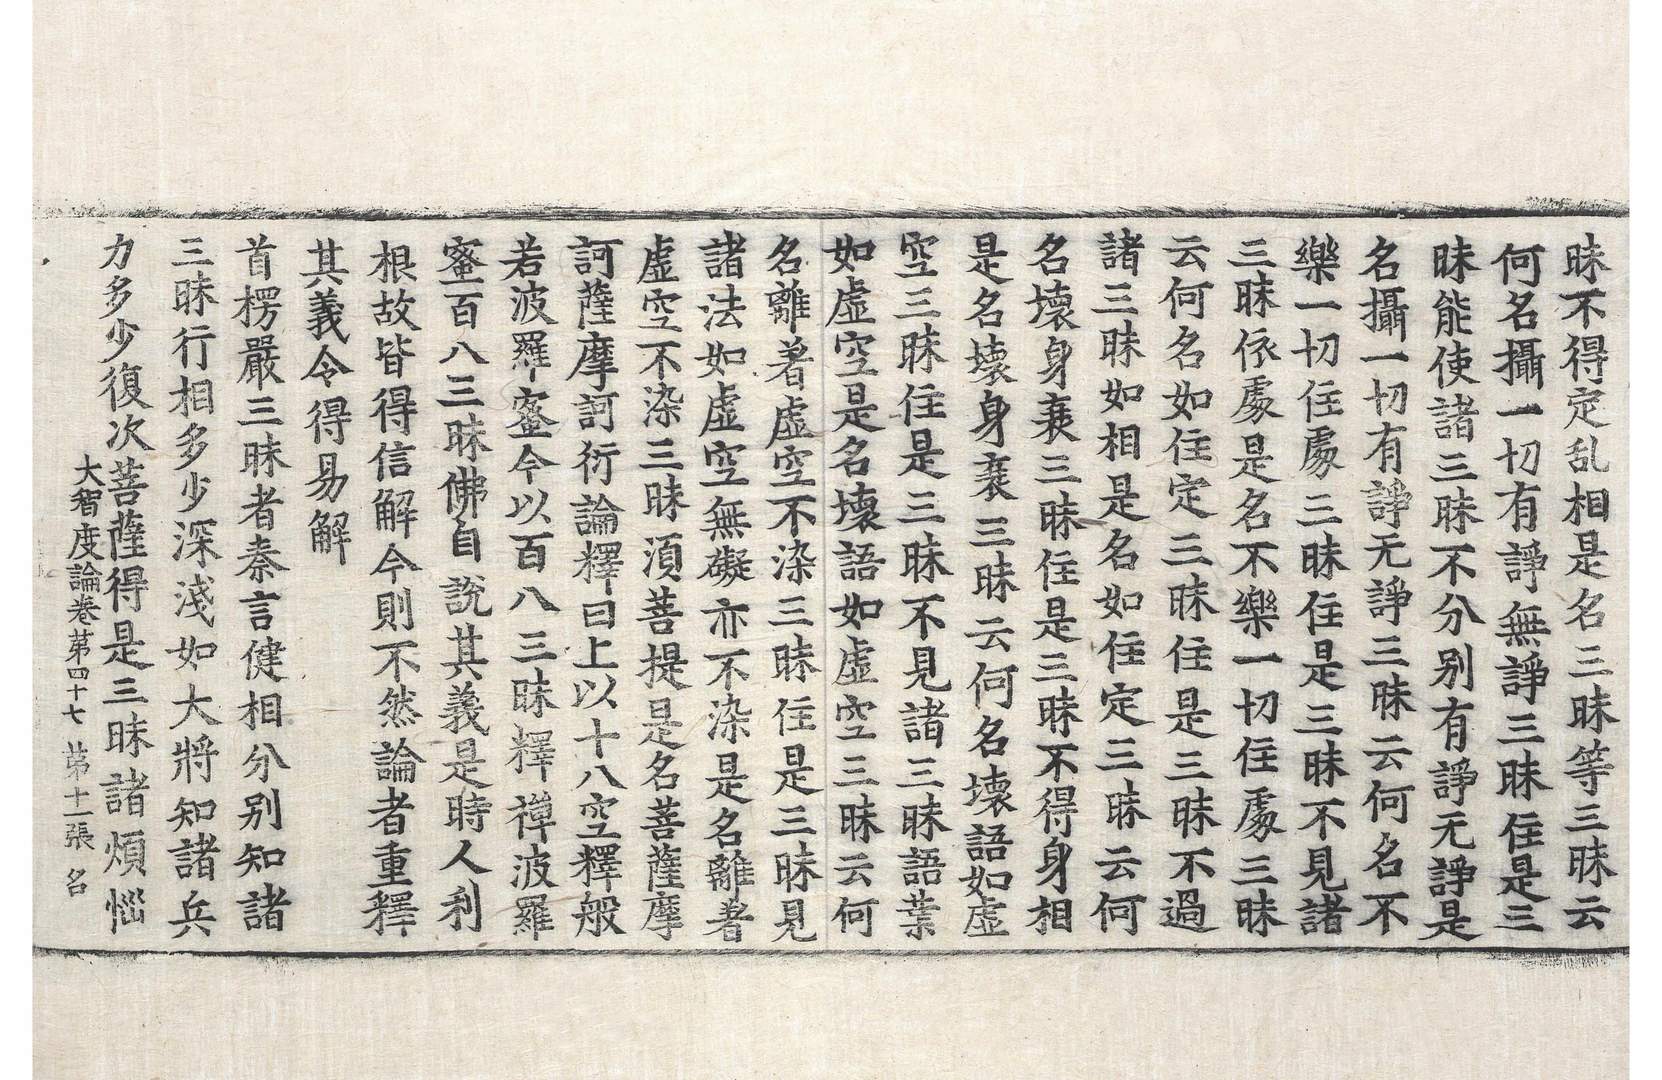 昧不得定乱相是名三昧等三昧云
何名攝一切有諍無諍三昧住是三
昧能使諸三昧不分别有諍无諍是
名攝一切有諍无諍三昧云何名不
樂一切住處三昧住是三昧不見諸
三昧依處是名不樂一切住處三昧
云何名如住定三昧住是三昧不過
諸三昧如相是名如住定三昧云何
名壞身衰三昧住是三昧不得身相
是名壞身衰三昧云何名壞語如虛
空三昧住是三昧不見諸三昧語業
如虛空是名壞語如虛空三昧云何
名離著虛空不染三昧住是三昧見
諸法如虛空無礙亦不染是名離著
虛空不染三昧須菩提是名菩薩摩
訶薩摩訶衍論釋曰上以十八空釋般
若波羅蜜今以百八三昧釋禪波羅
蜜百八三昧佛自說其義是時人利
根故皆得信解今則不然論者重釋
其義令得易解
首楞嚴三昧者秦言健相分别知諸
三昧行相多少深淺如大將知諸兵
力多少復次菩薩得是三昧諸煩惱
大智度論卷第四十七 第十二張 名